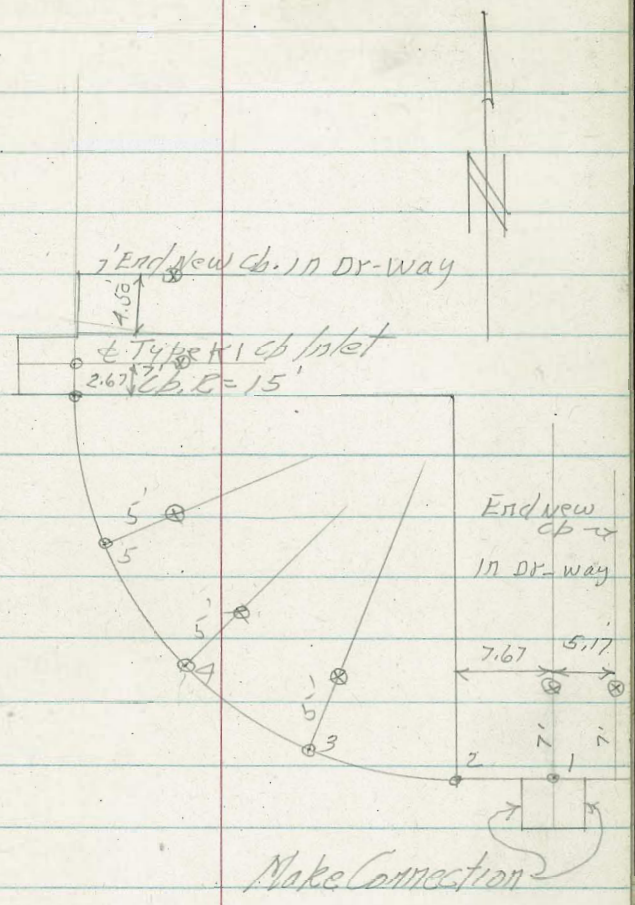 N
7' End New Cb. In Dr-Way
4.50'
℄ Type K1 Cb Inlet
7'
2.67' Cb. R = 15'
5'
5
End New
Cb →
In Dr-Way
5'
4
7.67 5.17'
5'
3
7' 7'
2 1
Make Connection